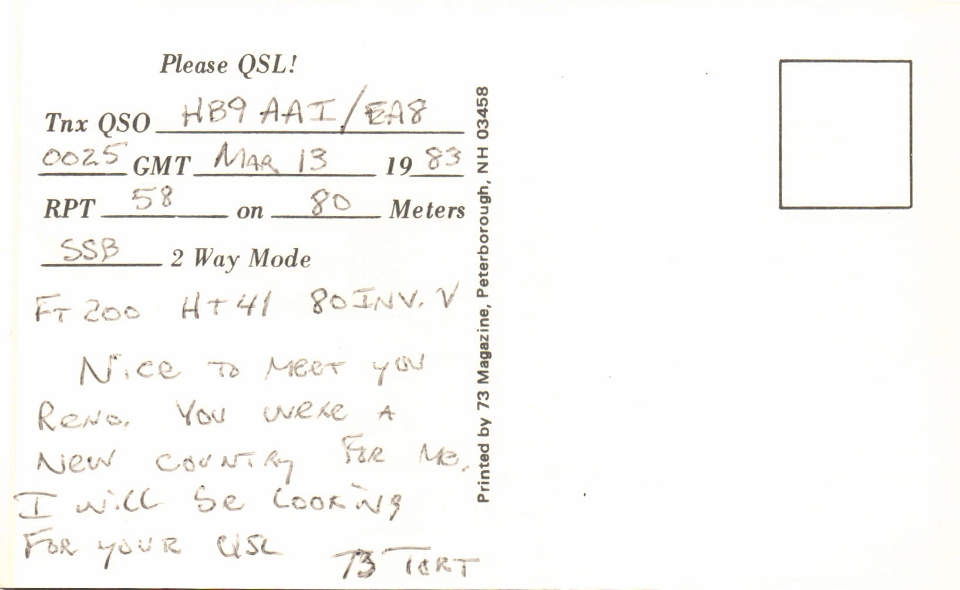 Please QSL!
Tnx QSO HB9AAI/EA8
0025 GMT MAR 13 1983
RPT 58 on 80 Meters
SSB 2 Way Mode
FT 200 HT41 80 INV. V
NICE TO MEET YOU
RENO. YOU WERE A
NEW COUNTRY FOR ME.
I WILL BE LOOKING
FOR YOUR QSL
73
Printed by 73 Magazine, Peterborough, NH 03458